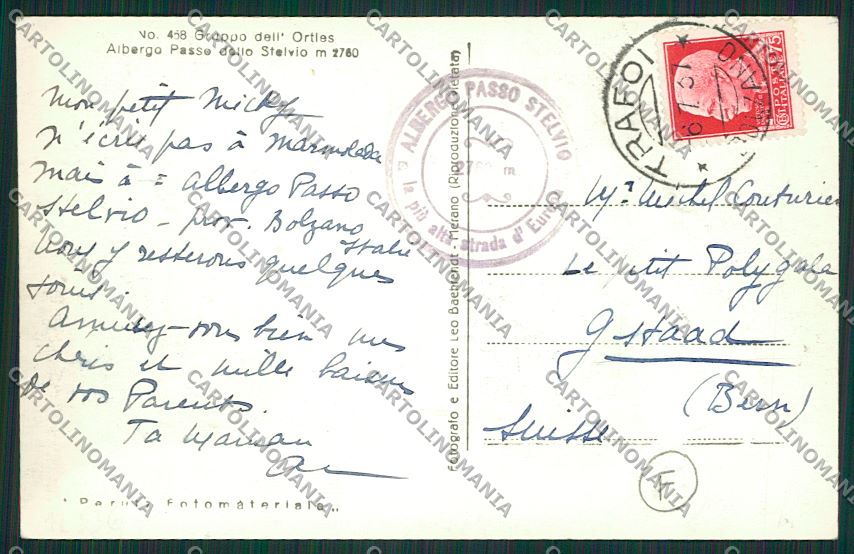 No. 468 Gruppo dell' Ortles
Albergo Passo dello Stelvio m 2760
Mon petit Micky
N'écris pas à Marmolada
mais à = Albergo Passo
Stelvio - prov. Bolzano
Italie
Nous y resterons quelques
jours.
Amusez-vous bien mes
chéris et mille baisers
de vos Parents.
Ta Maman
Fotografo e Editore Leo Baehrendt - Merano (Riproduzione vietata)
ALBERGO PASSO STELVIO
2760 m
la più alta strada d' Europa
TRAFOI
POSTE ITALIANE
75
Mr Michel Couturier
Le petit Polygala
Gstaad
(Bern)
Suisse
Perutz Fotomateriale
CARTOLINOMANIA